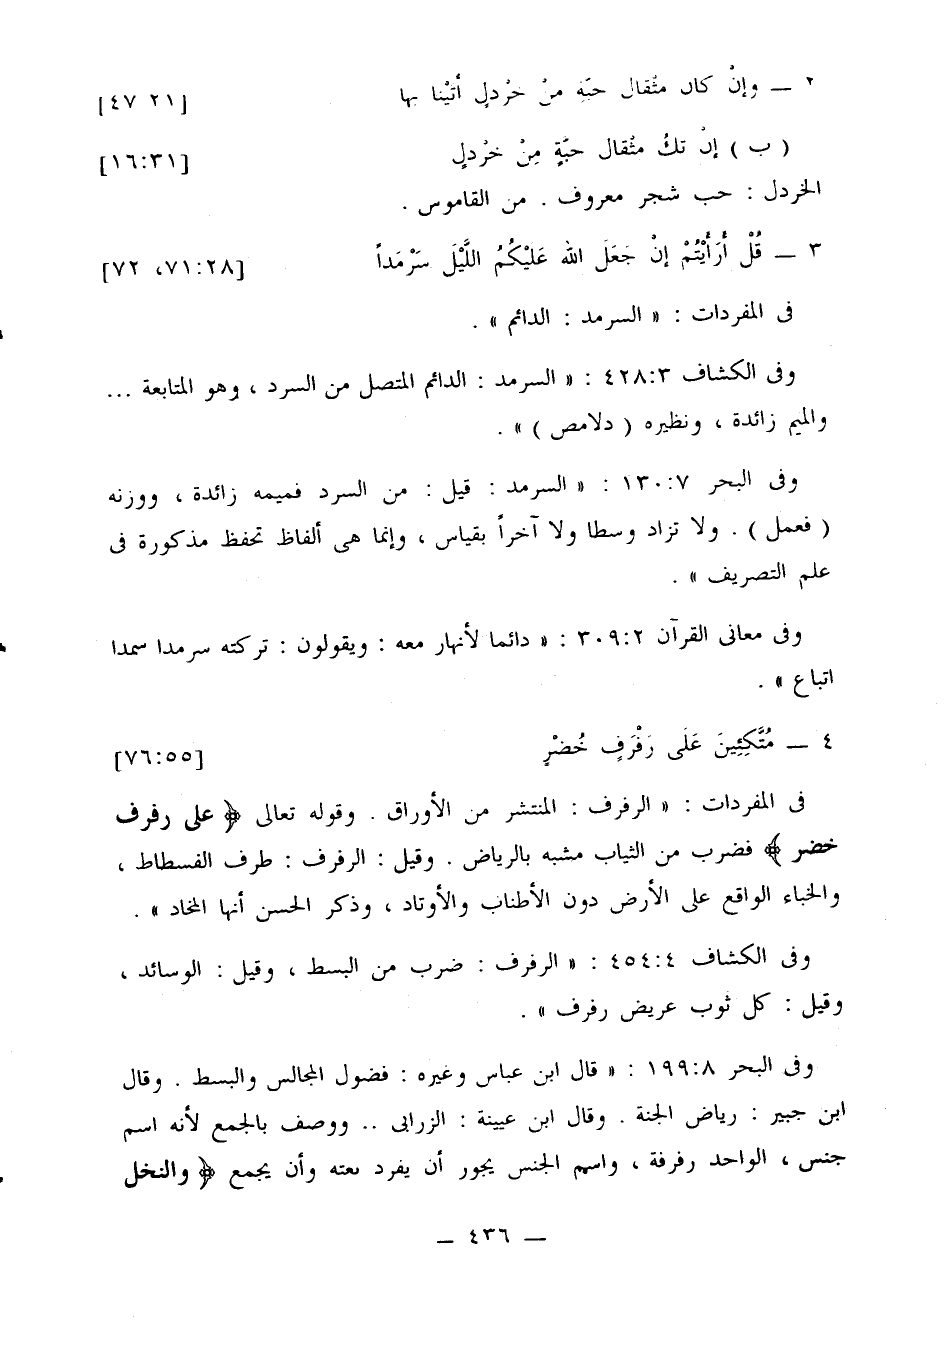 ٢ ــ وإنْ كان مثْقال حبّةٍ منْ خرْدلٍ أتيْنا بها [٢١ ٤٧]
( ب ) إنْ تكُ مثْقال حبَّةٍ مِنْ خرْدلٍ [١٦:٣١]
الخردل : حب شجر معروف . من القاموس .
٣ ــ قُلْ أَرَأَيْتُمْ إنْ جَعَلَ الله عَلَيْكُمُ اللَّيْلَ سَرْمَداً [٧١:٢٨، ٧٢]
فى المفردات : « السرمد : الدائم » .
وفى الكشاف ٤٢٨:٣ : « السرمد : الدائم المتصل من السرد ، وهو المتابعة ...
والميم زائدة ، ونظيره ( دلامص ) » .
وفى البحر ١٣٠:٧ : « السرمد : قيل : من السرد فميمه زائدة ، ووزنه
( فعمل ) . ولا تزاد وسطا ولا آخراً بقياس ، وإنما هى ألفاظ تحفظ مذكورة فى
علم التصريف » .
وفى معانى القرآن ٣٠٩:٢ : « دائما لأنهار معه : ويقولون : تركته سرمدا سمدا
اتباع » .
٤ ــ مُتَّكِئِينَ عَلَى رَفْرَفٍ خُضْرٍ [٧٦:٥٥]
فى المفردات : « الرفرف : المنتشر من الأوراق . وقوله تعالى ﴿ على رفرف
خضر ﴾ فضرب من الثياب مشبه بالرياض . وقيل : الرفرف : طرف الفسطاط ،
والخباء الواقع على الأرض دون الأطناب والأوتاد ، وذكر الحسن أنها المخاد » .
وفى الكشاف ٤٥٤:٤ : « الرفرف : ضرب من البسط ، وقيل : الوسائد ،
وقيل : كل ثوب عريض رفرف » .
وفى البحر ١٩٩:٨ : « قال ابن عباس وغيره : فضول المجالس والبسط . وقال
ابن جبير : رياض الجنة . وقال ابن عيينة : الزرابى .. ووصف بالجمع لأنه اسم
جنس ، الواحد رفرفة ، واسم الجنس يجور أن يفرد نعته وأن يجمع ﴿ والنخل
ــ ٤٣٦ ــ